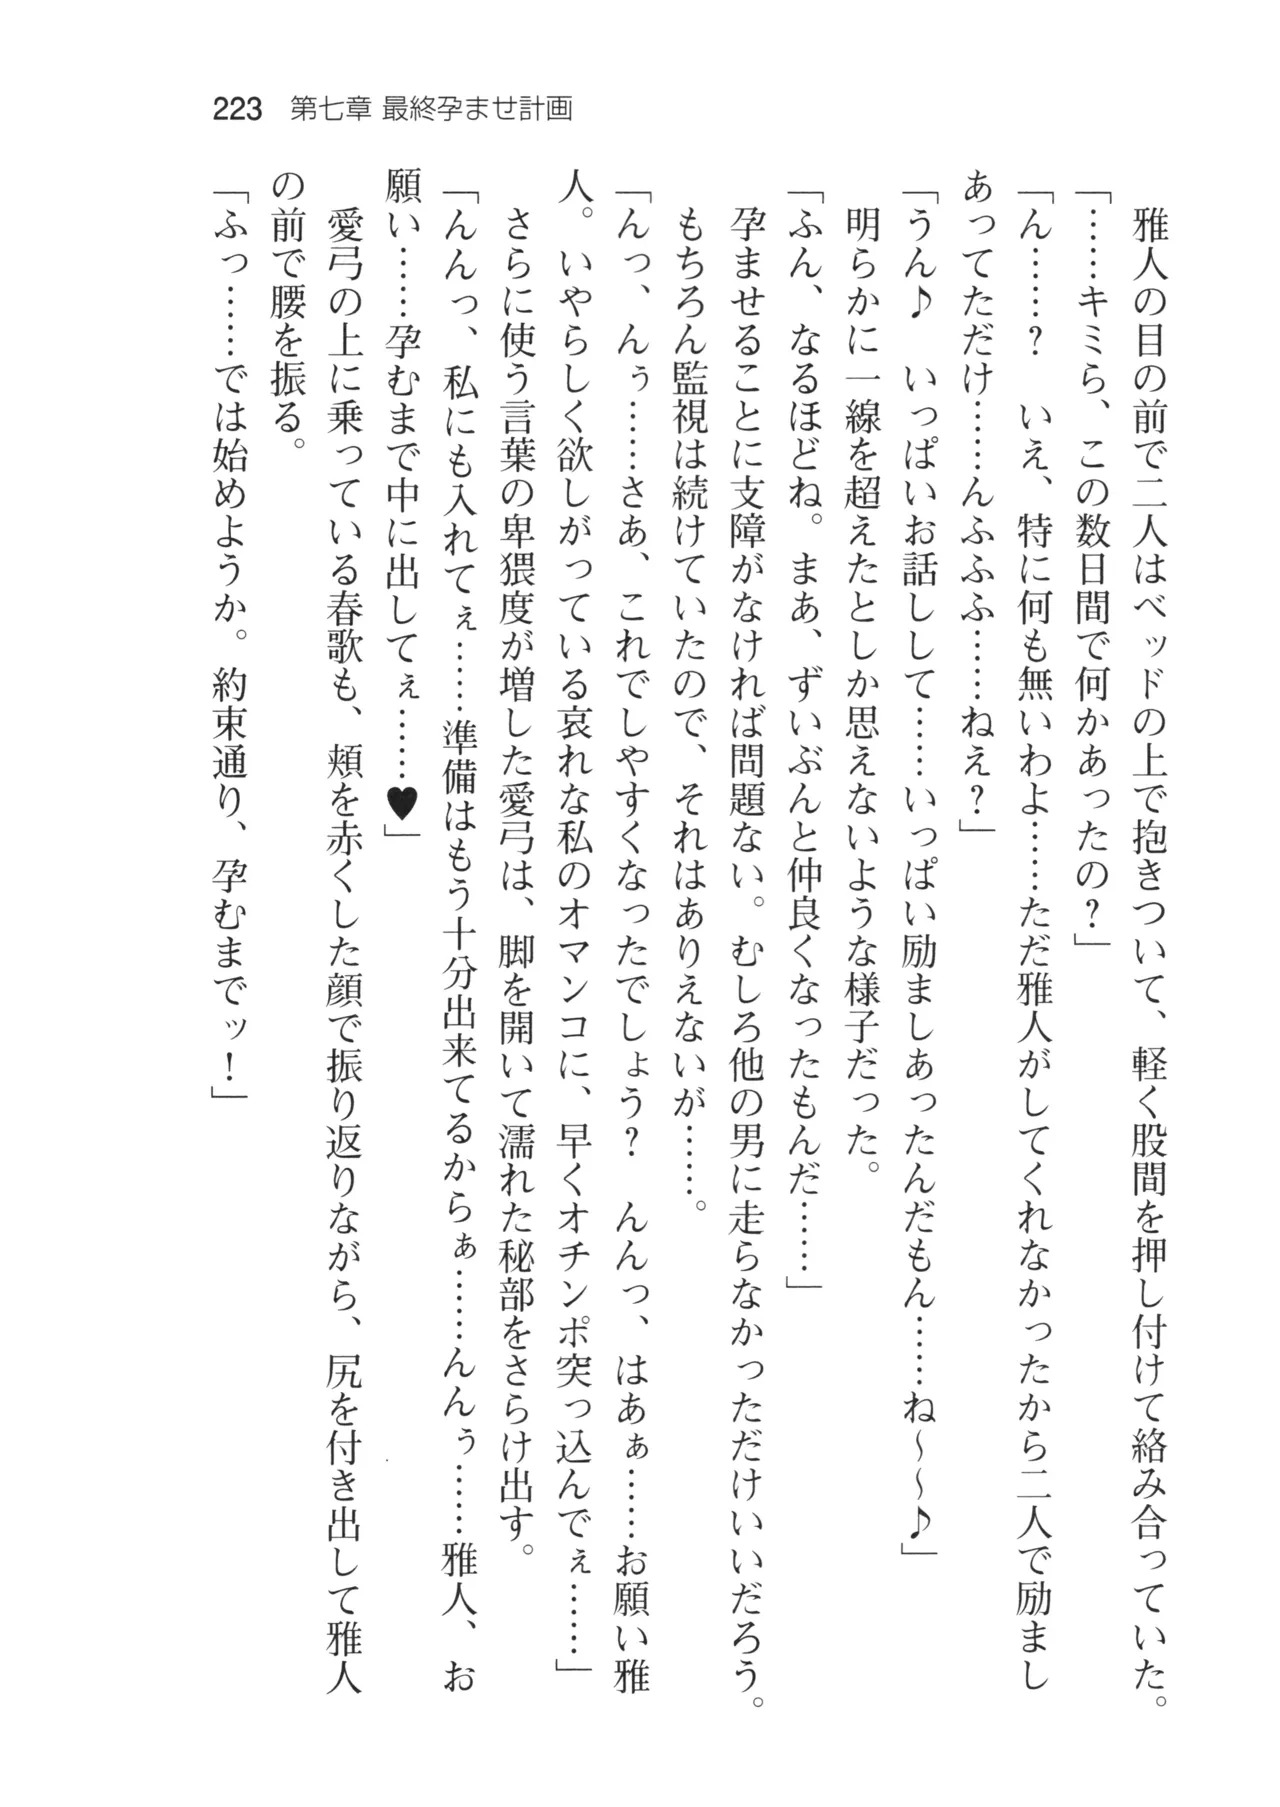 223 第七章 最終孕ませ計画
　雅人の目の前で二人はベッドの上で抱きついて、軽く股間を押し付けて絡み合っていた。
「……キミら、この数日間で何かあったの？」
「ん……？　いえ、特に何も無いわよ……ただ雅人がしてくれなかったから二人で励まし
あってただけ……んふふふ……ねえ？」
「うん♪　いっぱいお話しして……いっぱい励ましあったんだもん……ね～～♪」
　明らかに一線を超えたとしか思えないような様子だった。
「ふん、なるほどね。まあ、ずいぶんと仲良くなったもんだ……」
　孕ませることに支障がなければ問題ない。むしろ他の男に走らなかっただけいいだろう。
　もちろん監視は続けていたので、それはありえないが……。
「んっ、んぅ……さあ、これでしやすくなったでしょう？　んんっ、はあぁ……お願い雅
人。いやらしく欲しがっている哀れな私のオマンコに、早くオチンポ突っ込んでぇ……」
　さらに使う言葉の卑猥度が増した愛弓は、脚を開いて濡れた秘部をさらけ出す。
「んんっ、私にも入れてぇ……準備はもう十分出来てるからぁ……んんぅ……雅人、お
願い……孕むまで中に出してぇ……♥」
　愛弓の上に乗っている春歌も、頬を赤くした顔で振り返りながら、尻を付き出して雅人
の前で腰を振る。
「ふっ……では始めようか。約束通り、孕むまでッ！」